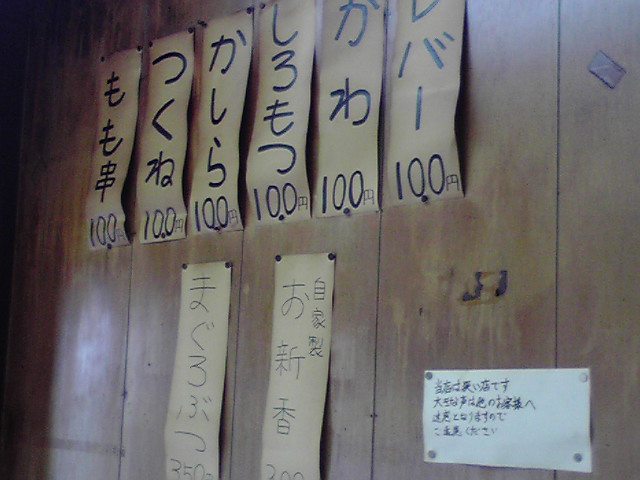 レバー
100円
かわ
100円
しろもつ
100円
かしら
100円
つくね
100円
もも串
100円
自家製
お新香
300
まぐろぶつ
350円
当店は狭い店です
大きな声は他のお客様へ
迷惑となりますので
ご注意ください